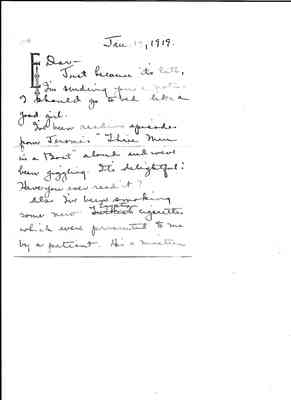 Jan 1, 1919.
Dear-
Just because it's late,
I'm sending you a note.
I should go to bed like a
good girl.
I've been reading episodes
from Jerome's "Three Men
in a Boat" aloud and we've
been giggling. It's delightful!
Have you ever read it?
Also I've been smoking
some new Turkish cigarettes
which were presented to me
by a patient. He's a